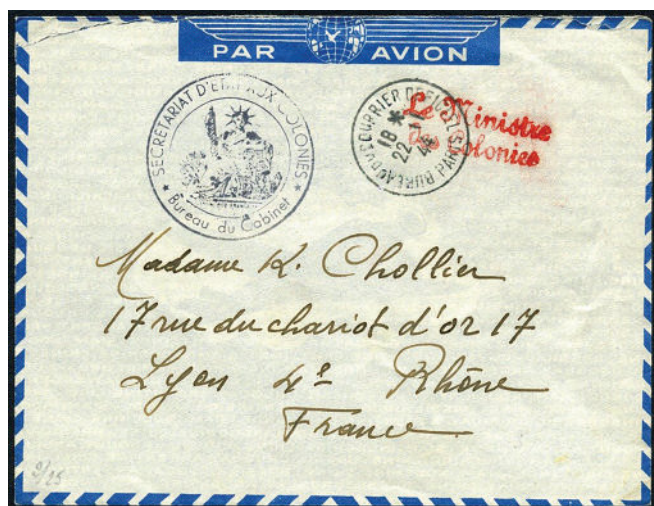 PAR AVION
SECRÉTARIAT D'ÉTAT AUX COLONIES
Bureau du Cabinet
BUREAU DU COURRIER OFFICIEL PARIS
18 *
22 - 11
44
Le Ministre
des Colonies
Madame K. Chollier
17 rue du chariot d'or 17
Lyon 4e Rhône
France
2/25